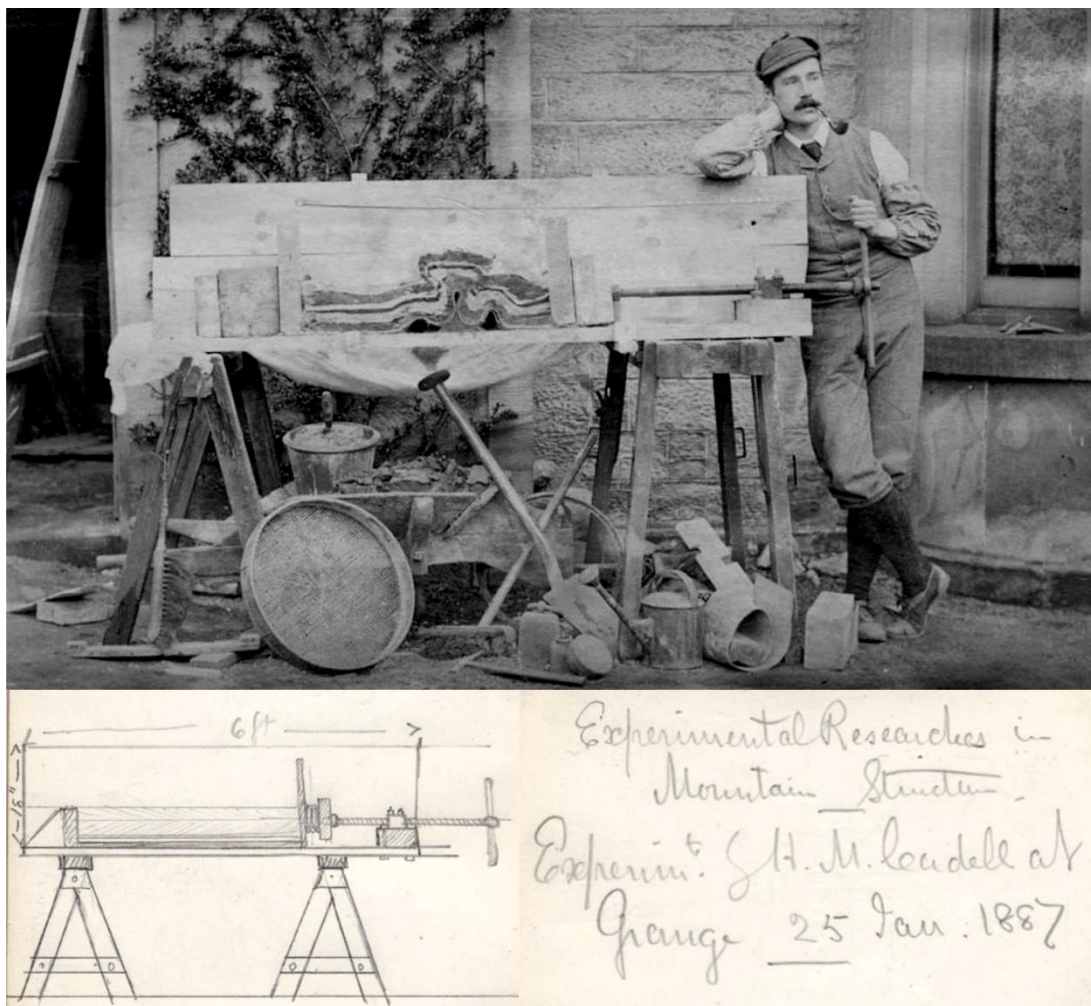 6 ft
18"
Experimental Researches in
Mountain Structure.
Experimts. of H. M. Cadell at
Grange 25 Jan. 1887